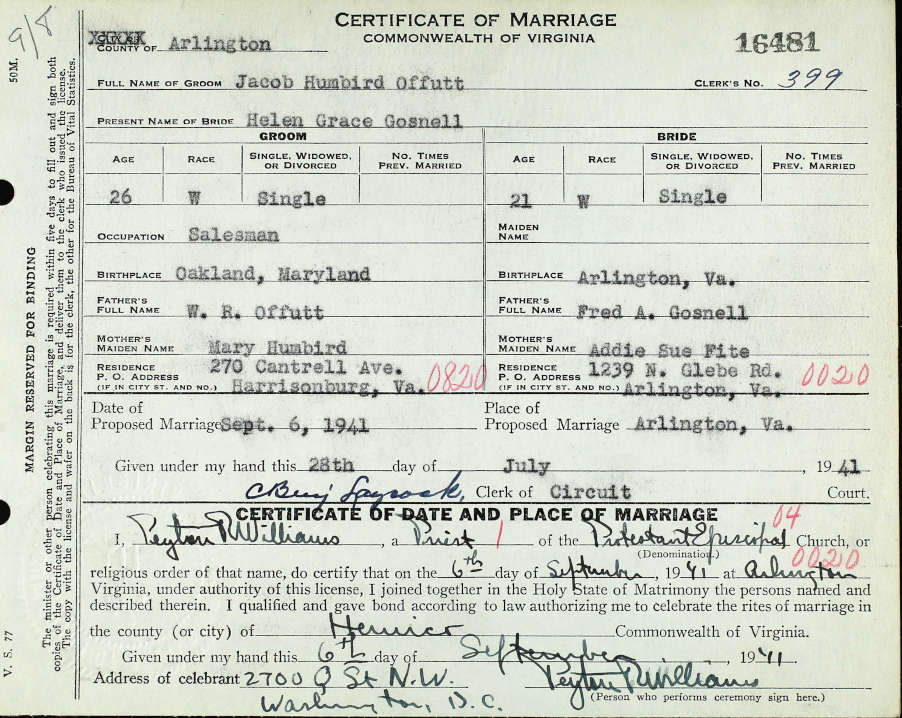 CERTIFICATE OF MARRIAGE
COMMONWEALTH OF VIRGINIA
COUNTY OF Arlington
16481
FULL NAME OF GROOM Jacob Humbird Offutt CLERK'S NO. 399
PRESENT NAME OF BRIDE Helen Grace Gosnell
GROOM BRIDE
AGE RACE SINGLE, WIDOWED, OR DIVORCED NO. TIMES PREV. MARRIED AGE RACE SINGLE, WIDOWED, OR DIVORCED NO. TIMES PREV. MARRIED
26 W Single 21 W Single
OCCUPATION Salesman MAIDEN NAME
BIRTHPLACE Oakland, Maryland BIRTHPLACE Arlington, Va.
FATHER'S FULL NAME W. R. Offutt FATHER'S FULL NAME Fred A. Gosnell
MOTHER'S MAIDEN NAME Mary Humbird MOTHER'S MAIDEN NAME Addie Sue Fite
RESIDENCE P. O. ADDRESS (IF IN CITY ST. AND NO.) 270 Cantrell Ave. Harrisonburg, Va. 0820 RESIDENCE P. O. ADDRESS (IF IN CITY ST. AND NO.) 1239 N. Glebe Rd. Arlington, Va. 0020
Date of Proposed Marriage Sept. 6, 1941 Place of Proposed Marriage Arlington, Va.
Given under my hand this 28th day of July, 1941
C Benj Laycock, Clerk of Circuit Court.
CERTIFICATE OF DATE AND PLACE OF MARRIAGE
04
I, Peyton R Williams, a Priest 1 of the Protestant Episcopal Church, or
(Denomination.)
0020
religious order of that name, do certify that on the 6th day of September, 1941 at Arlington
Virginia, under authority of this license, I joined together in the Holy State of Matrimony the persons named and
described therein. I qualified and gave bond according to law authorizing me to celebrate the rites of marriage in
the county (or city) of Henrico Commonwealth of Virginia.
Given under my hand this 6th day of September, 1941.
Address of celebrant 2700 Q St N.W. Peyton R Williams
Washington, D.C. (Person who performs ceremony sign here.)
9/8
50M.
MARGIN RESERVED FOR BINDING
V. S. 77
The minister or other person celebrating this marriage is required within five days to fill out and sign both
copies of the Certificate of Date and Place of Marriage, and deliver them to the clerk who issued the license.
The copy with the license and wafer on the back is for the clerk, the other for the Bureau of Vital Statistics.